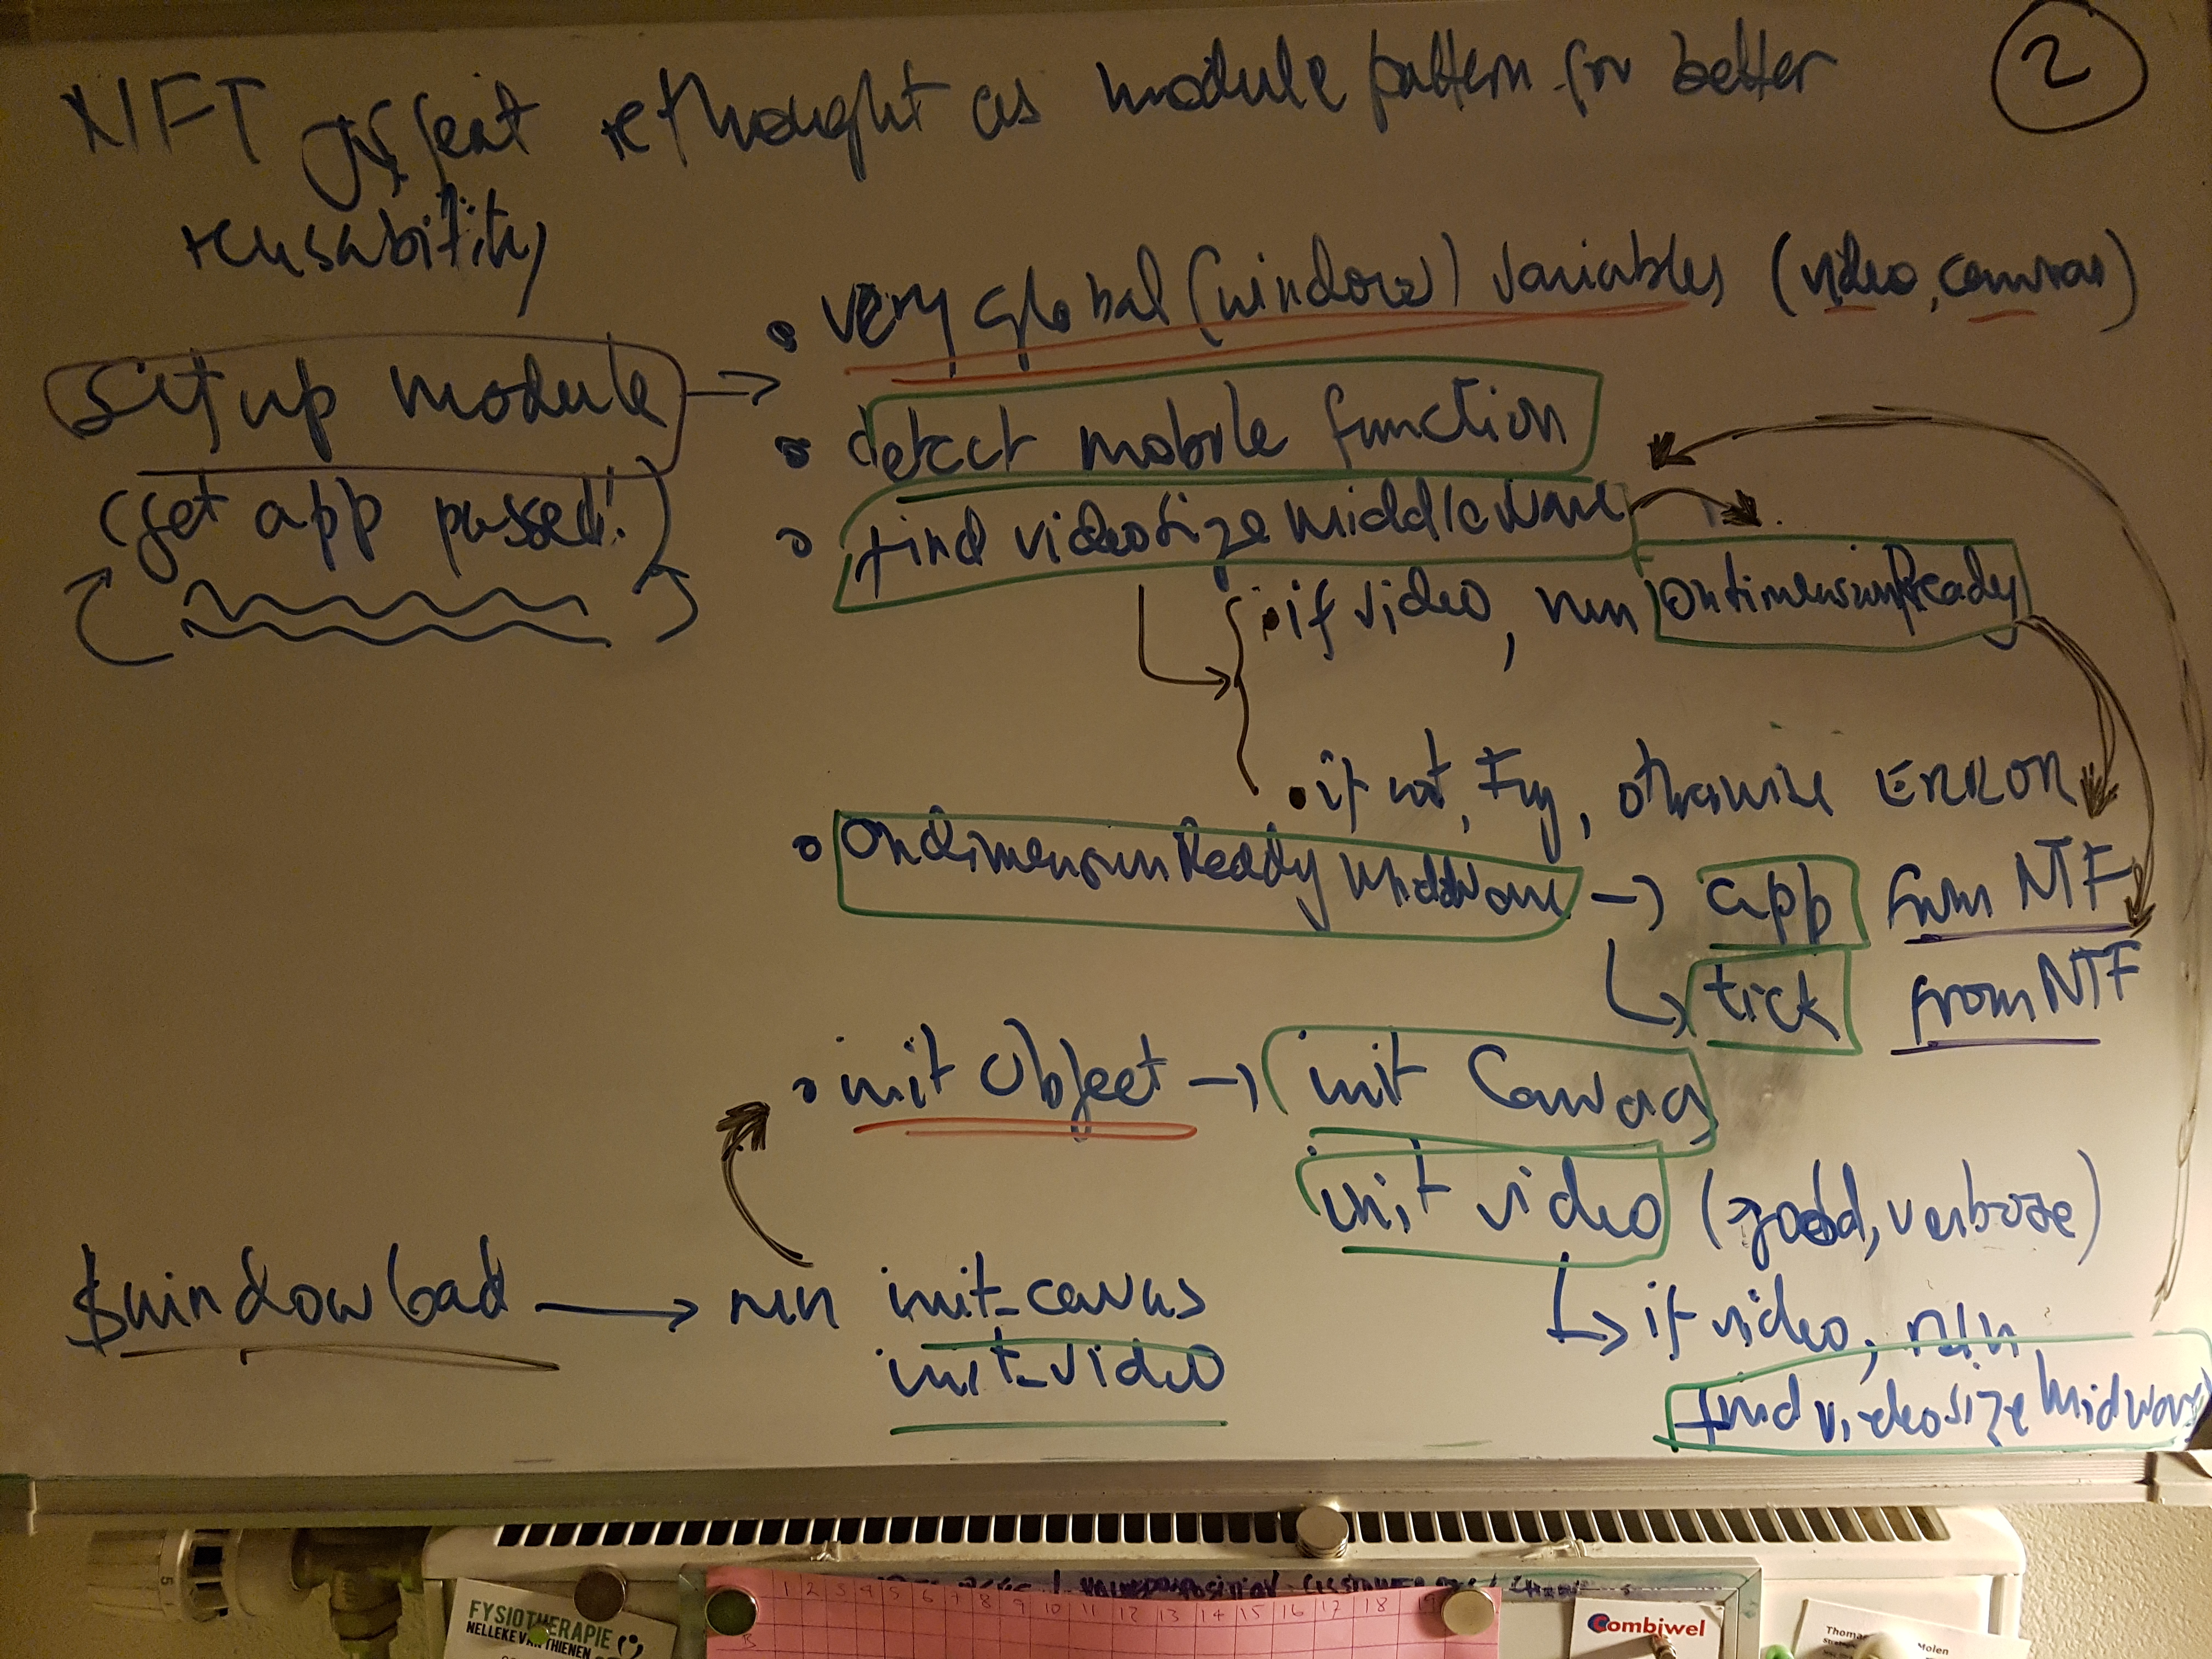 2
NFT jsfeat rethought as module pattern for better
reusability
• very global (window) variables (video, canvas)
setup module →
• detect mobile function
(get app passed!)
• find videosize middleware
• if video, run ondimensionReady
• if not, try, otherwise ERROR
• OndimensionReady middware → app from NTF
tick from NTF
• init Object → init Canvas
init video (good, verbose)
$window load → run init_canvas
init_video
if video, run
find videosize midware
5
1 2 3 4 5 6 7 8 9 10 11 12 13 14 15 16 17 18
B
FYSIOTHERAPIE
NELLEKE VAN THIENEN
Combiwel
Thomas Molen